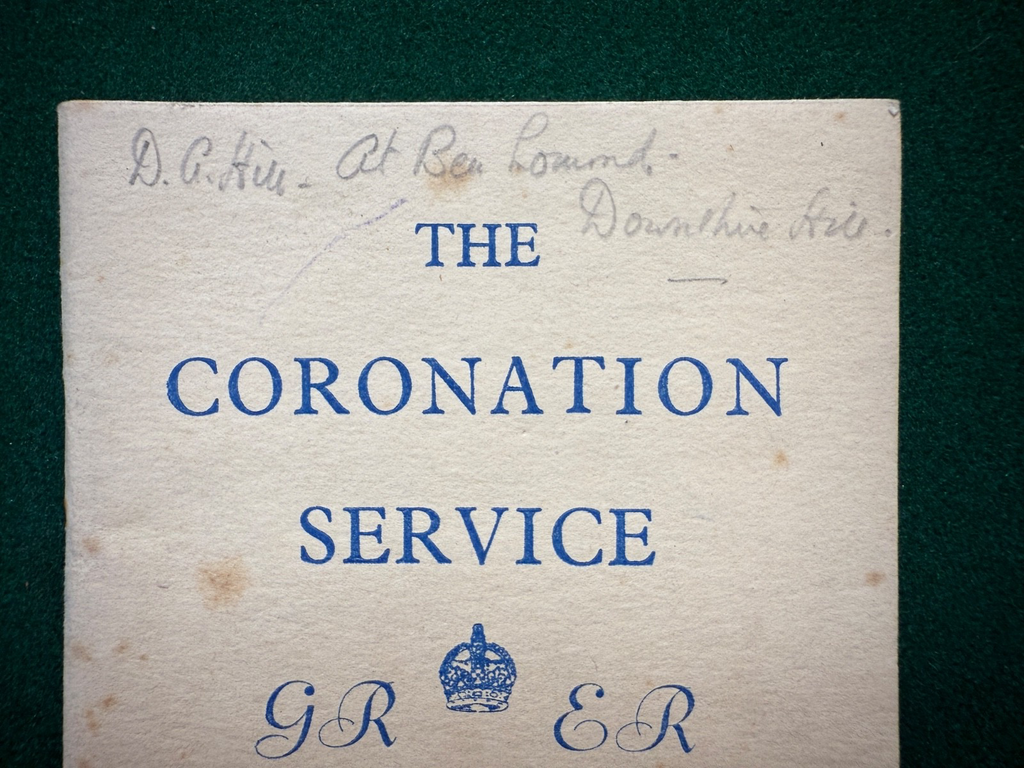 D. A. Hill - At Ben Lomond -
Downshire Hill.
THE
CORONATION
SERVICE
GR ER